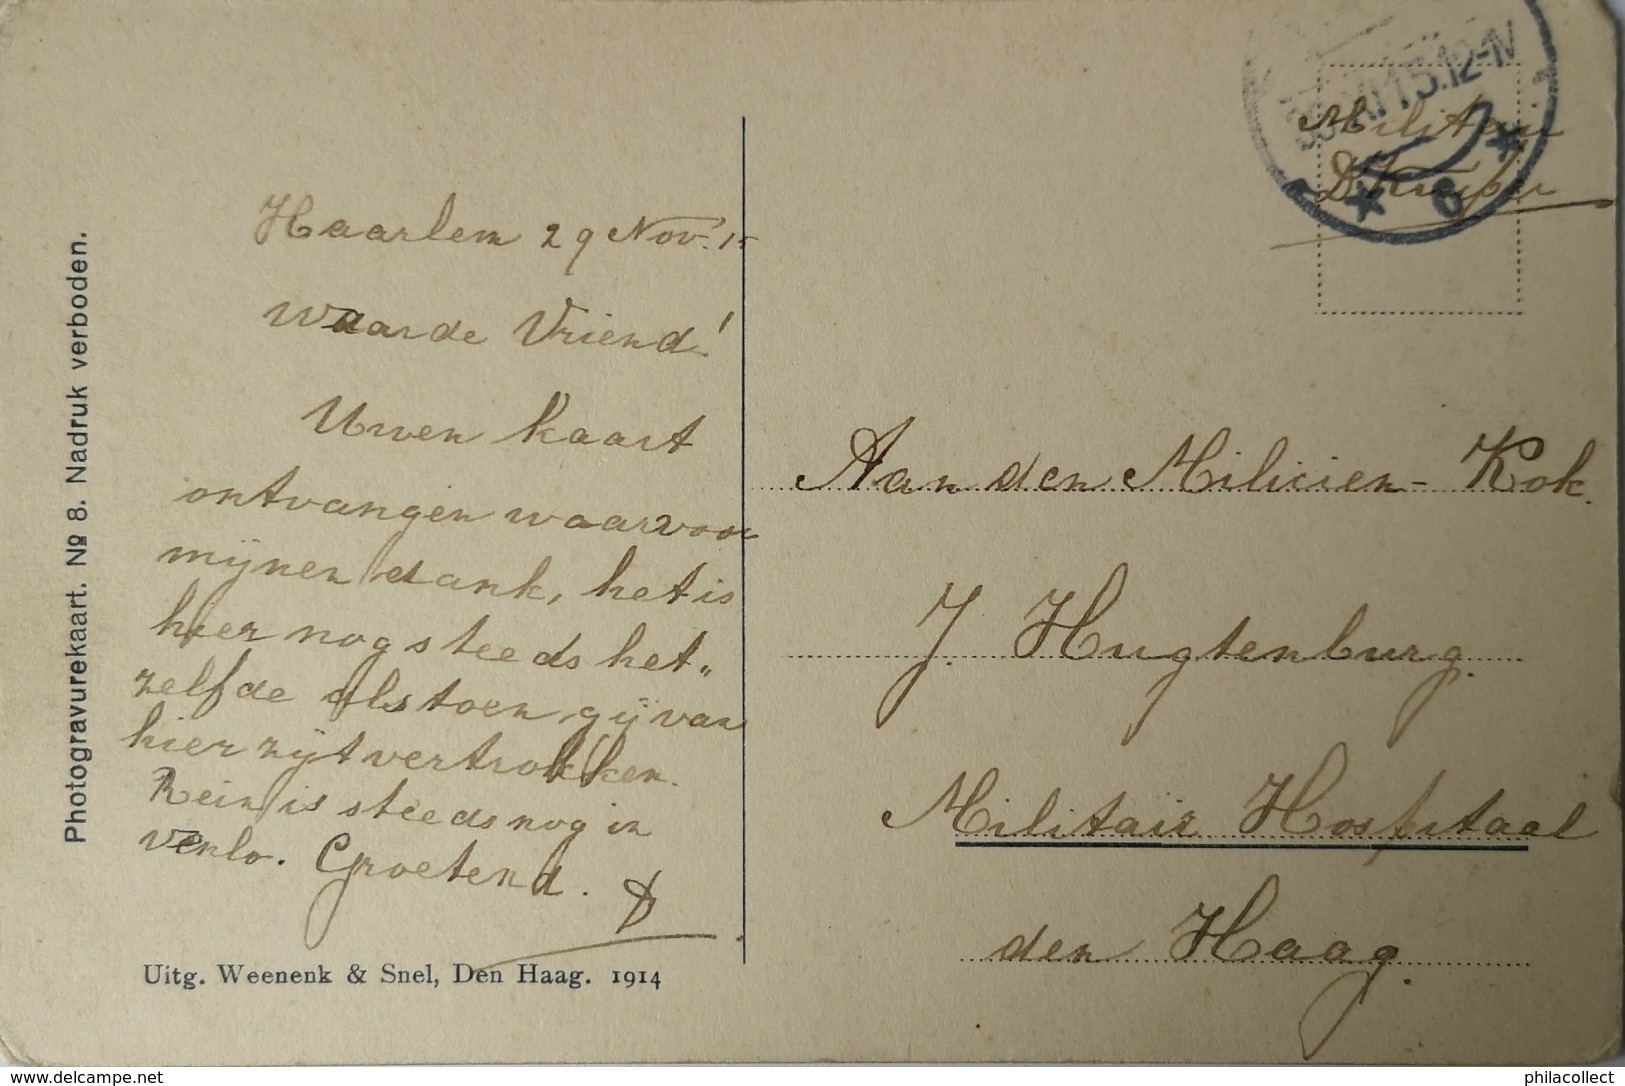 Photogravurekaart. № 8. Nadruk verboden.
Haarlem 29 Nov. 15
Waarde Vriend!
Uwen kaart
ontvangen waarvoor
mijnen dank, het is
hier nog steeds het„
zelfde als toen gij van
hier zijt vertrokken.
Rein is steeds nog in
Venlo. Groetend.
Uitg. Weenenk & Snel, Den Haag. 1914
XI 15.12-1N
* 6 *
Militair
D Kuiper
Aan den Milicien-Kok.
J. Hugtenburg.
Militair Hospitaal
den Haag.
delcampe.net
philacollect